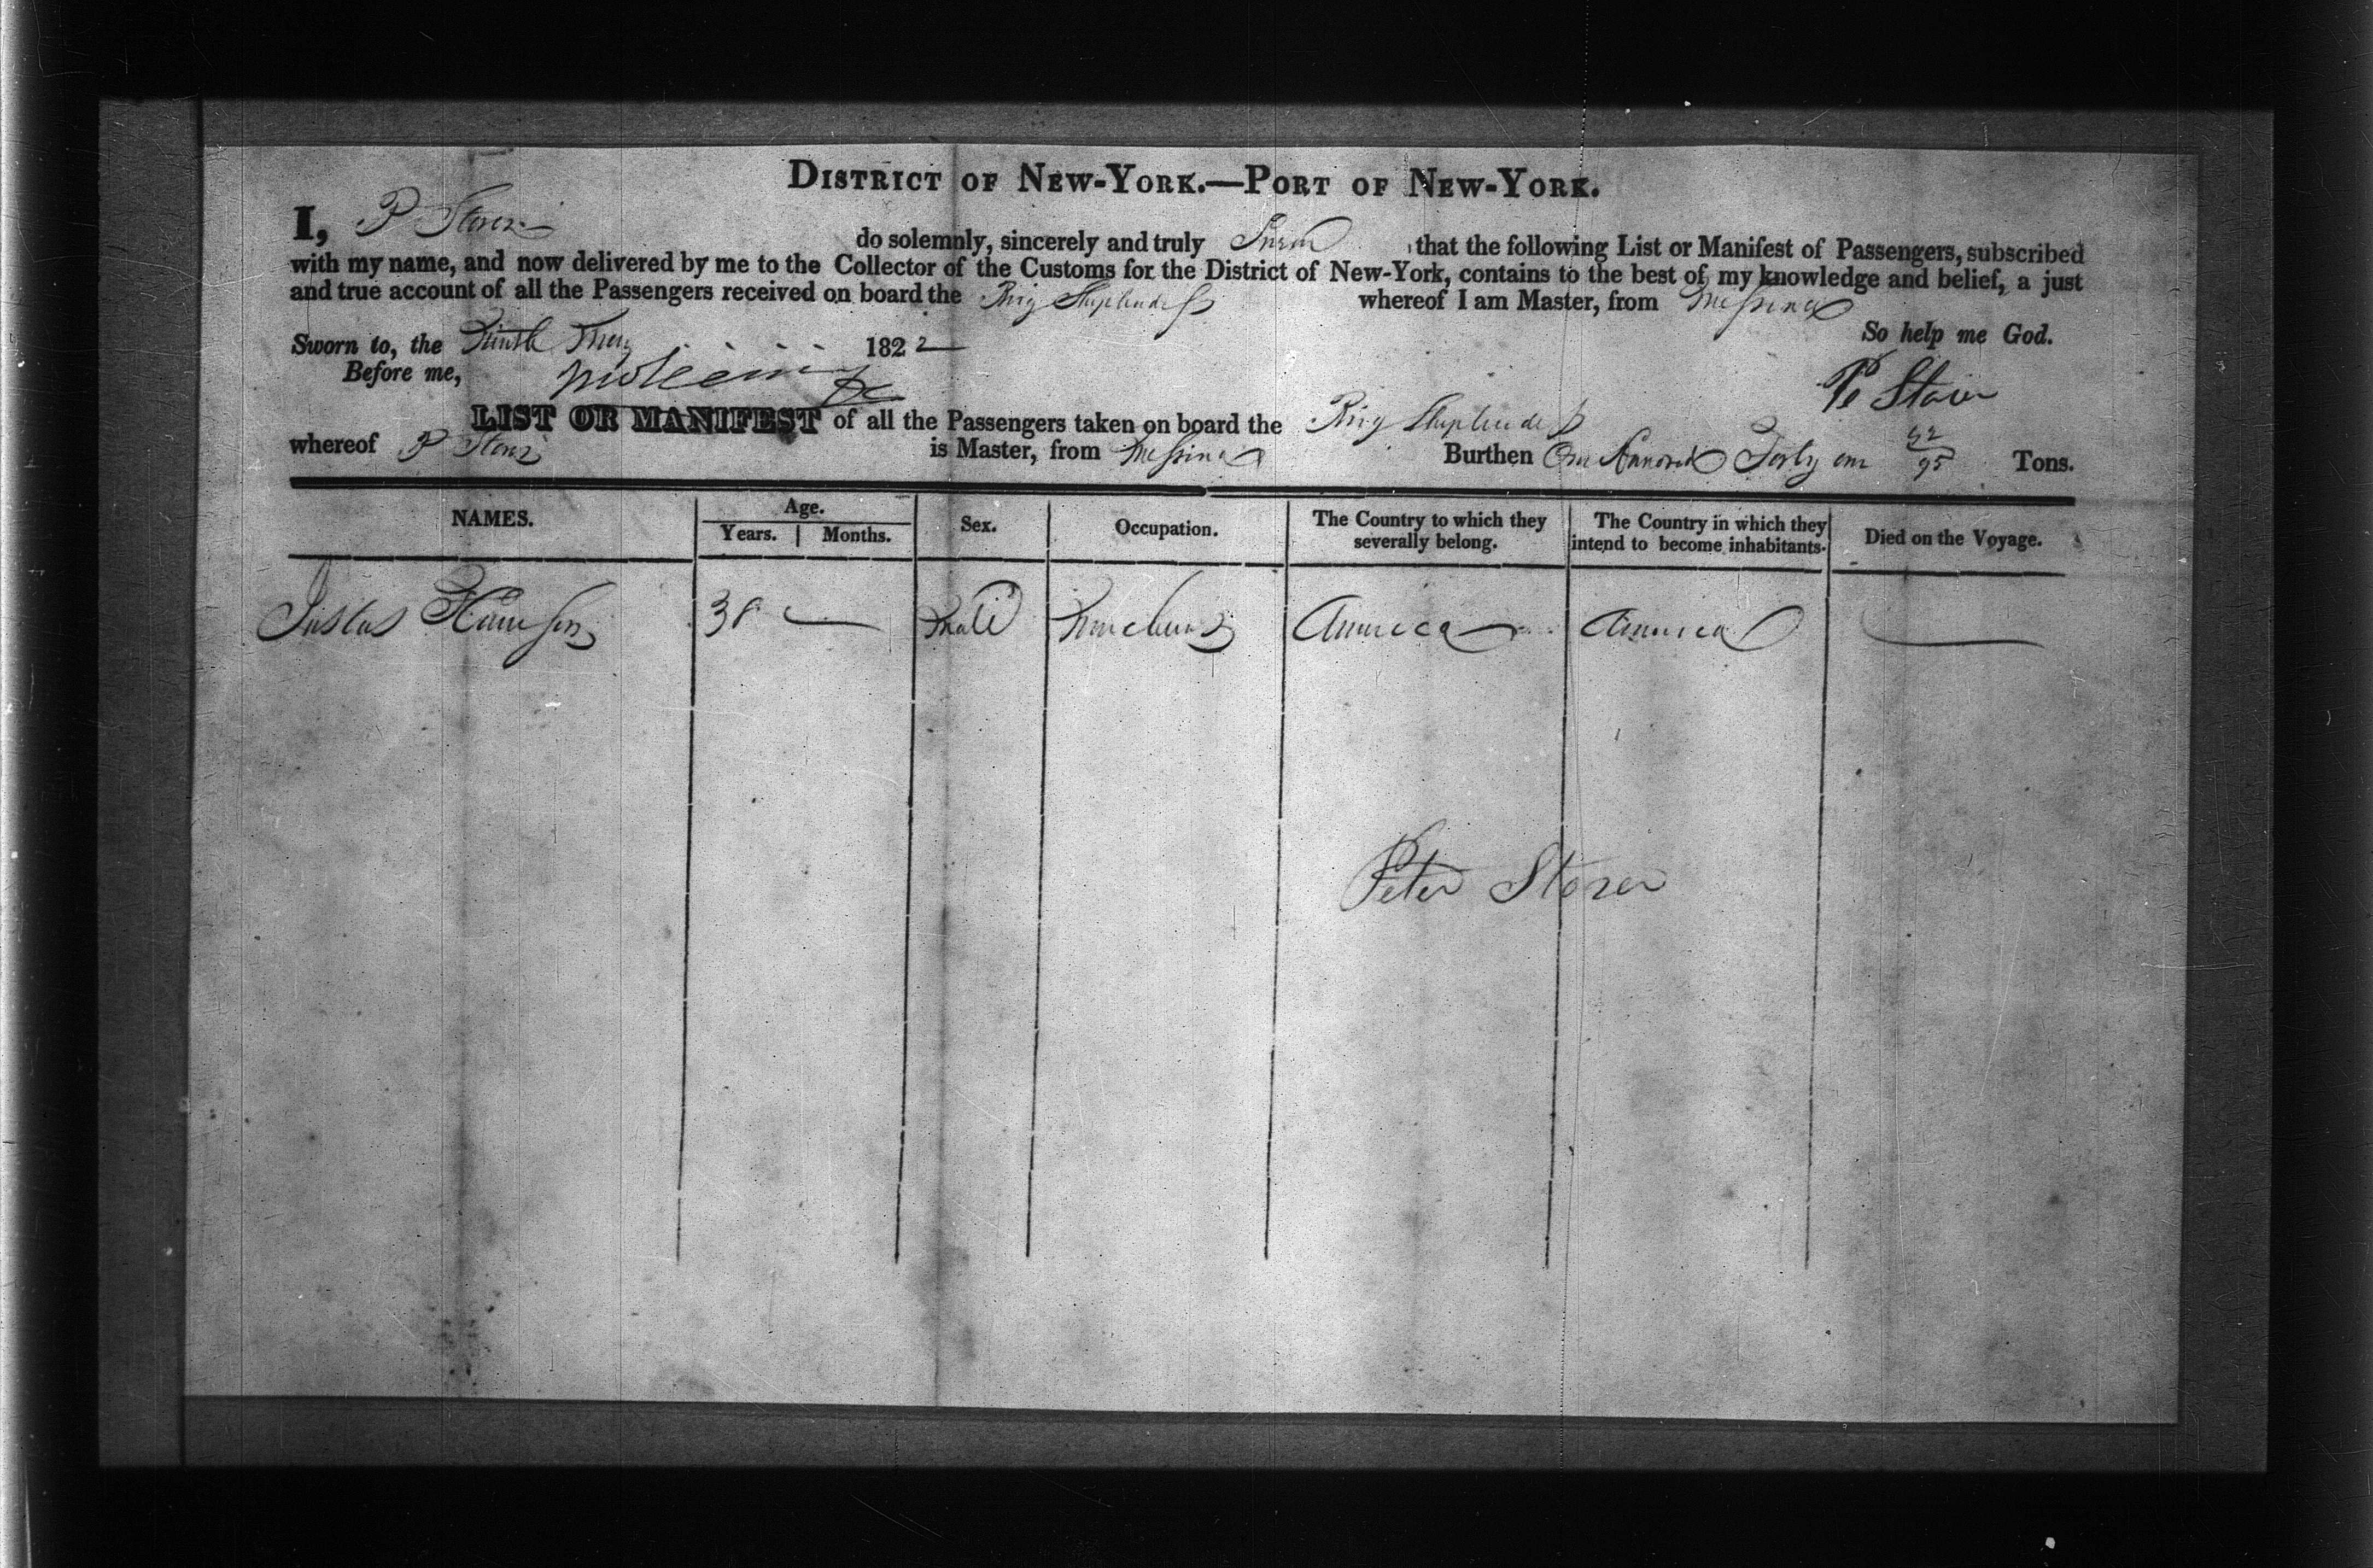 DISTRICT OF NEW-YORK.—PORT OF NEW-YORK.
I, P Storer do solemnly, sincerely and truly Swear that the following List or Manifest of Passengers, subscribed
with my name, and now delivered by me to the Collector of the Customs for the District of New-York, contains to the best of my knowledge and belief, a just
and true account of all the Passengers received on board the Brig Shepherdess whereof I am Master, from Messina
So help me God.
Sworn to, the Ninth May 1822
Before me,
P Storer
LIST OR MANIFEST of all the Passengers taken on board the Brig Shepherdess
whereof P Storer is Master, from Messina Burthen One Hundred Forty one 42/95 Tons.
NAMES. Age. Sex. Occupation. The Country to which they severally belong. The Country in which they intend to become inhabitants. Died on the Voyage.
Years. Months.
Justus Harrison 38 Male America America
Peter Storer